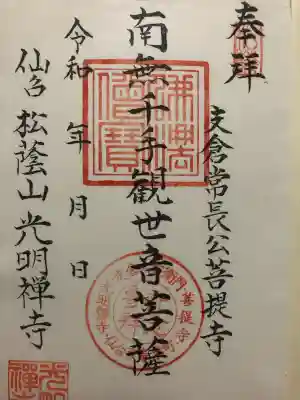 奉拝
支倉常長公菩提寺
南無千手観世音菩薩
令和 年 月 日
仙台 松蔭山 光明禅寺
佛法僧寳